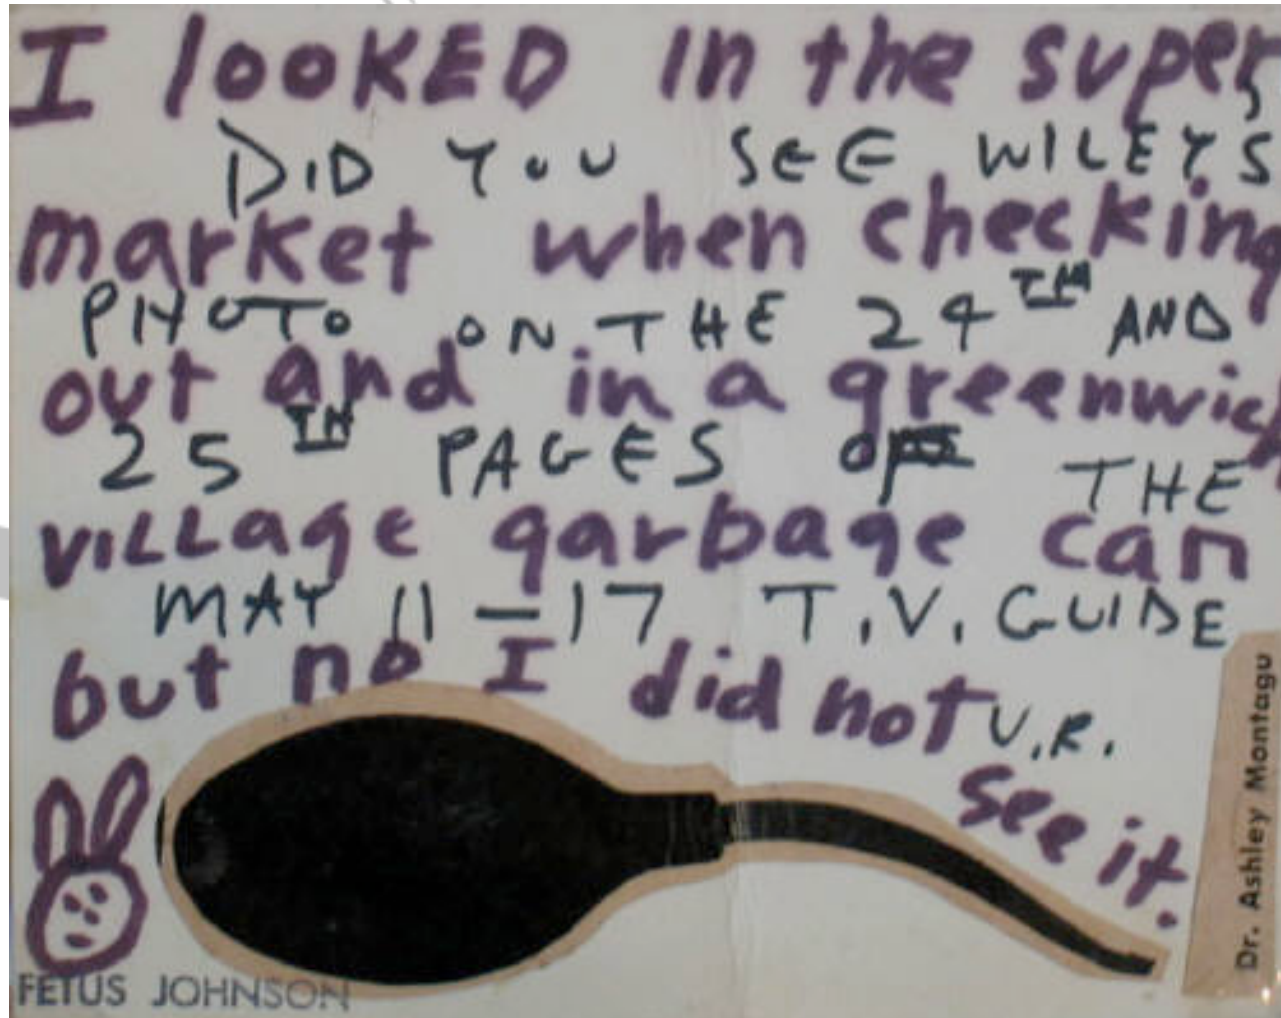 I looKED in the super
DID YOU SEE WILEYS
market when checking
PHOTO ON THE 24TH AND
out and in a greenwich
25TH PAGES OF THE
viLLage garbage can
MAY 11-17 T.V. GUIDE
but no I did not
U.R.
see it.
Dr. Ashley Montagu
FETUS JOHNSON